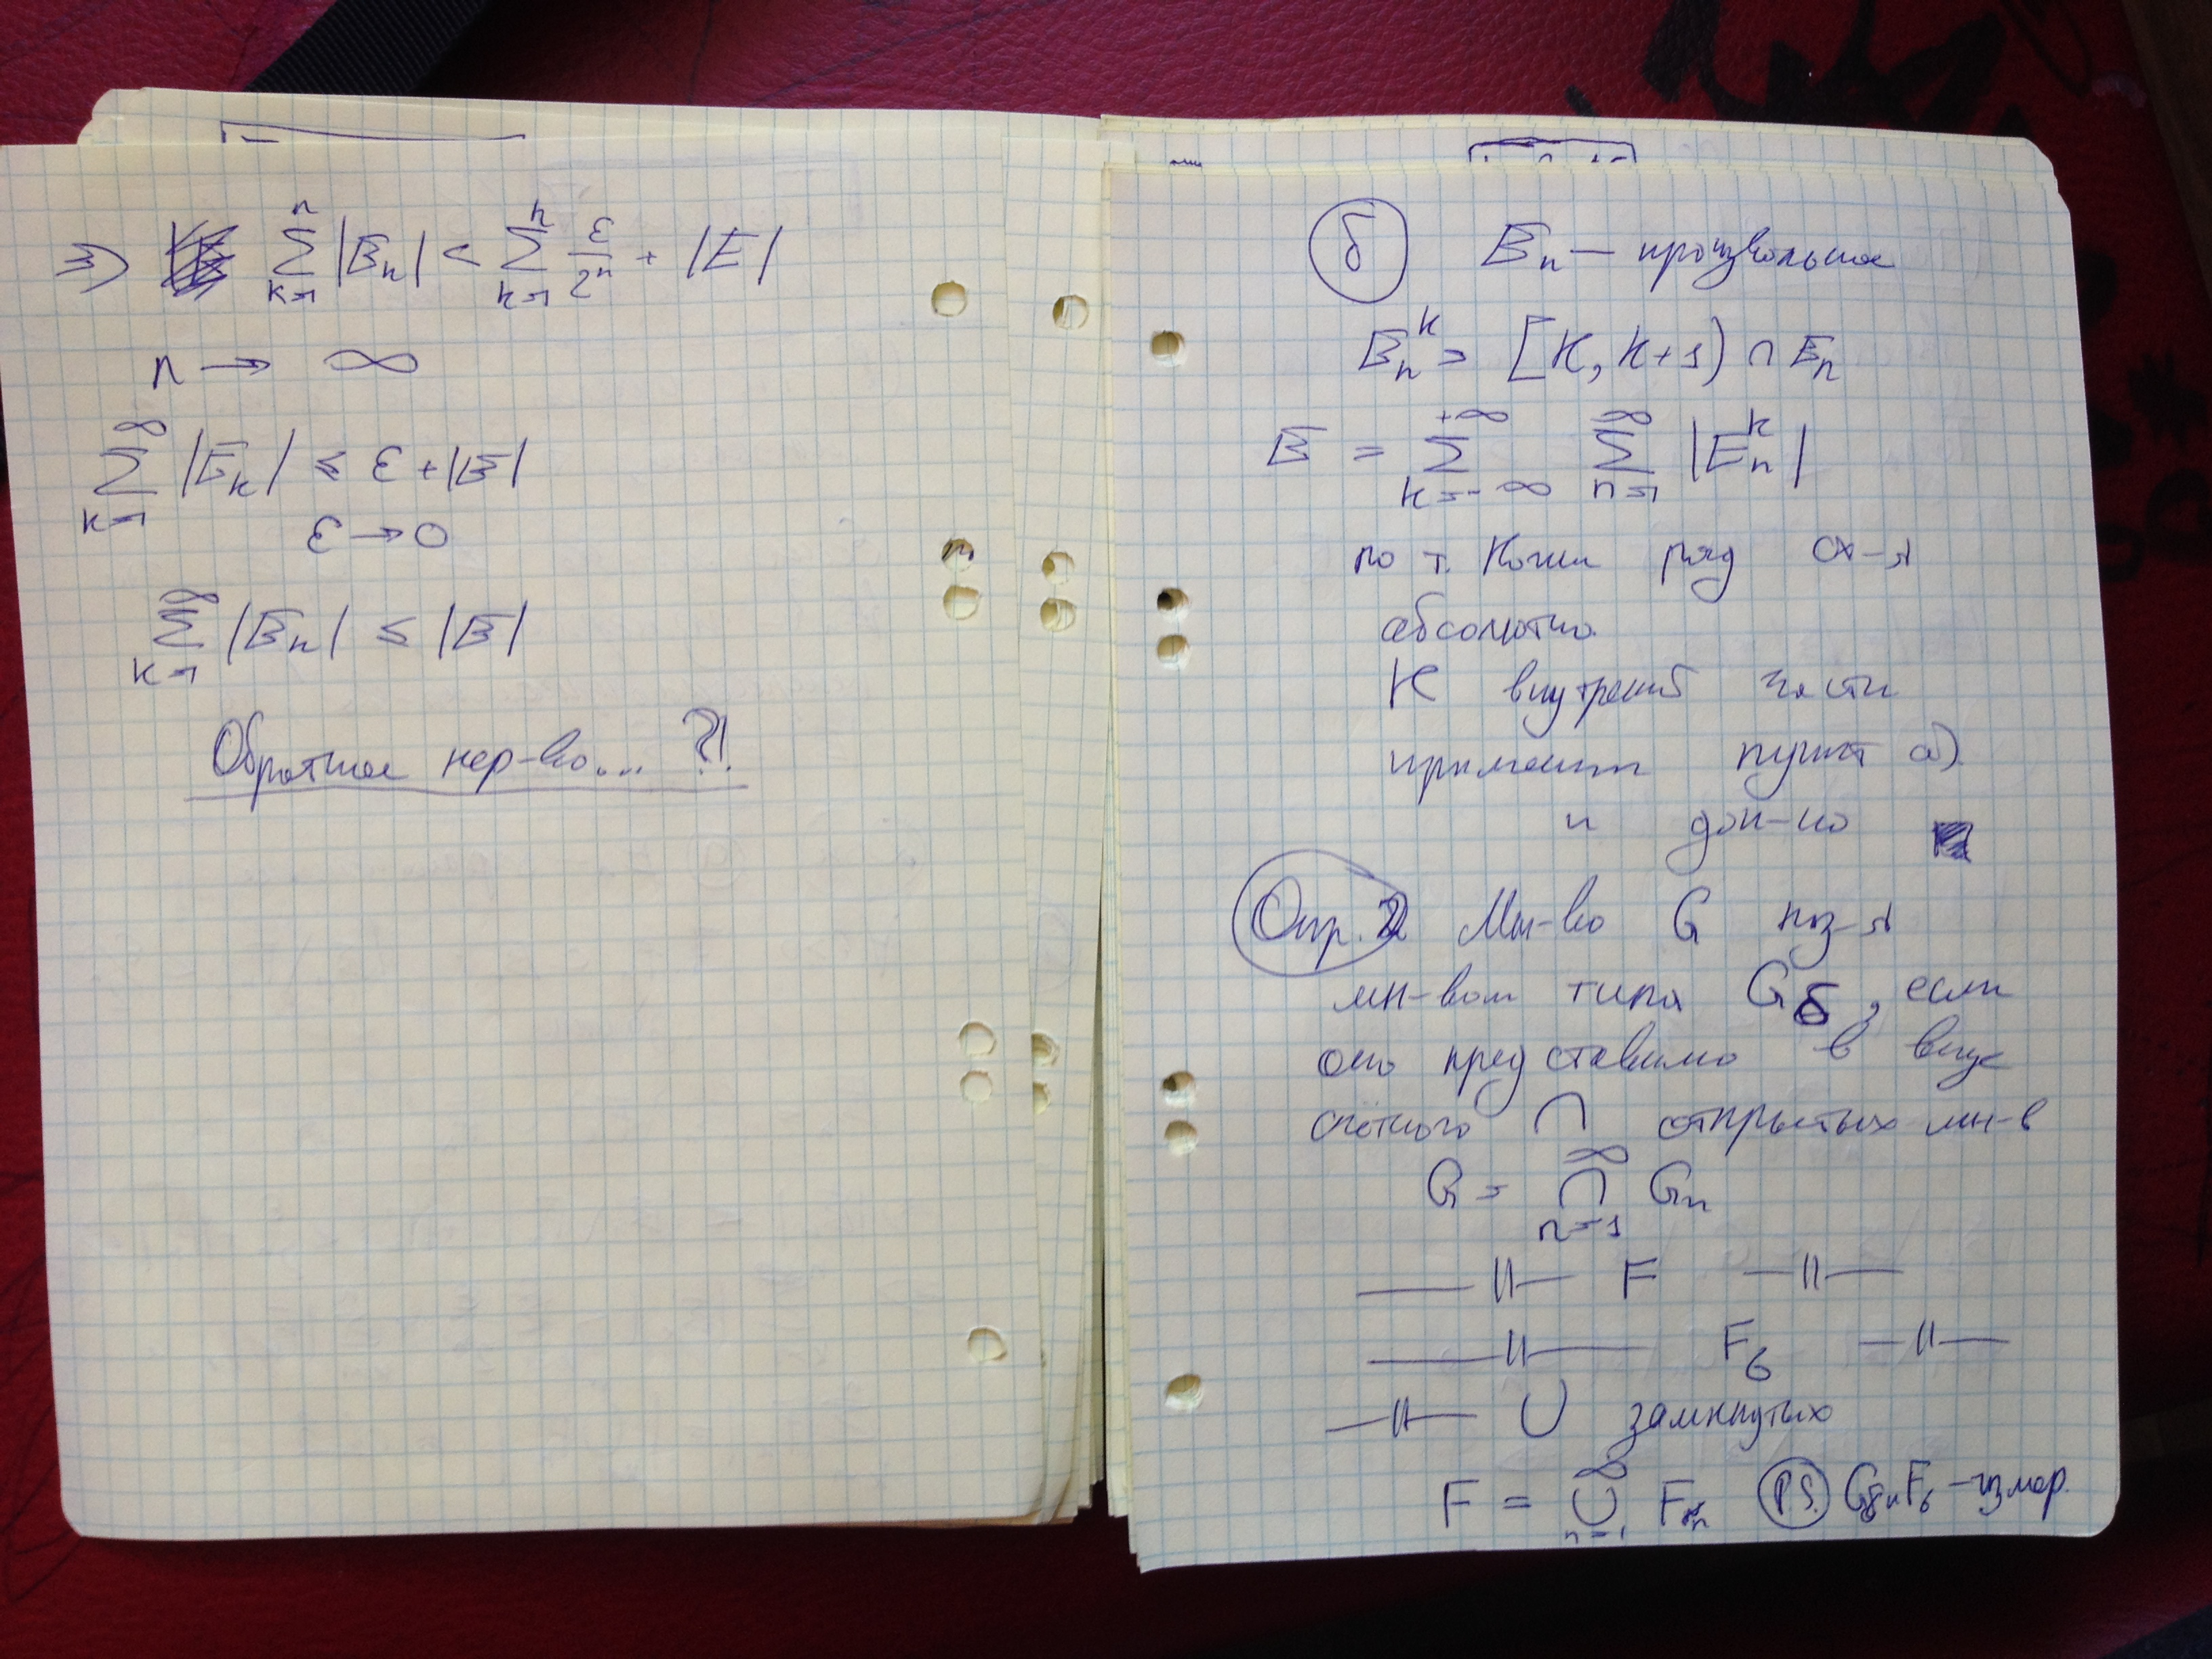 ⇒) ∑_{k=1}^{n} |E_n| < ∑_{k=1}^{n} ε/2^n + |E|
n → ∞
∑_{k=1}^{∞} |E_k| ≤ ε + |E|
ε → 0
∑_{k=1}^{∞} |E_n| ≤ |E|
Обратное нер-во... ?!
б E_n — произвольное
E_n^k = [K, K+1) ∩ E_n
E = ∑_{k=-∞}^{+∞} ∑_{n=1}^{∞} |E_n^k|
по т. Коши ряд сх-я
абсолютно
К внутренней части
применим пункт а)
и док-но
Опр. 2 Мн-во G наз-я
мн-вом типа G_δ, если
оно представимо в виде
счётного ∩ открытых мн-в
G = ∩_{n=1}^{∞} G_n
—— || — F — || ——
—— || —— F_б — || ——
— || — ∪ замкнутых
F = ∪_{n=1}^{∞} F_n P.S. G_δ и F_б — измер.